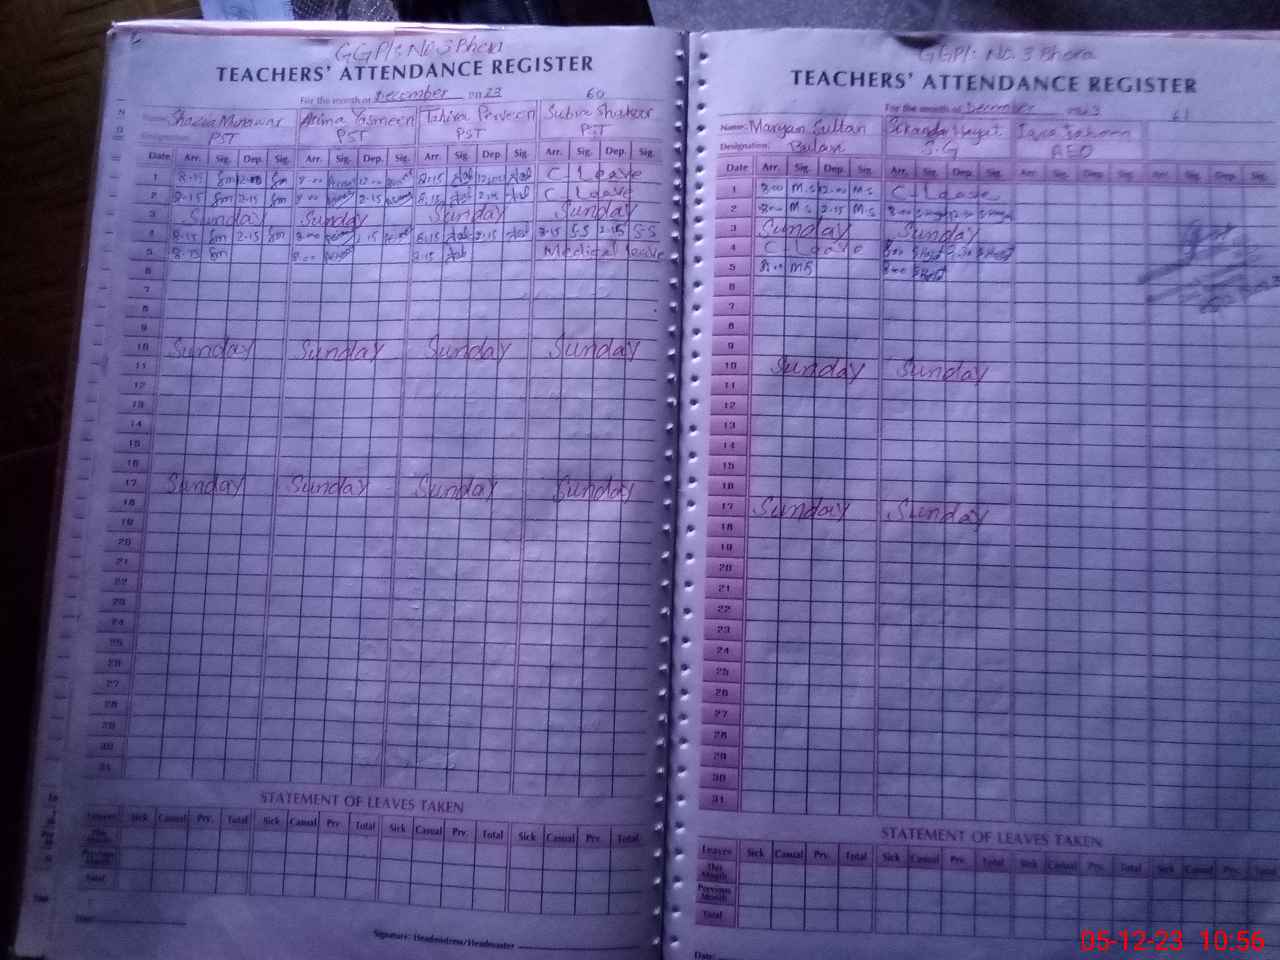 GGP/: No. 3 Bhera
TEACHERS' ATTENDANCE REGISTER
For the month of December 2023 60
Name: Shazia Munawar Asima Yasmeen Tahira Parveen Subra Shakoor
Designation: PST PST PST PST
Date Arr. Sig. Dep. Sig. Arr. Sig. Dep. Sig. Arr. Sig. Dep. Sig. Arr. Sig. Dep. Sig.
1 8-15 Sm Sm 8-00 12-00 8-15 12-00 C-Leave
2 8-15 Sm 2-15 Sm 2-15 8-15 2-15 C Leave
3 Sunday Sunday Sunday Sunday
4 8-15 Sm 2-15 Sm 8-00 2-15 8-15 2-15 8-15 S-S 2-15 S-S
5 8-15 Sm 8-00 8-15 Medical leave
6
7
8
9
10 Sunday Sunday Sunday Sunday
11
12
13
14
15
16
17 Sunday Sunday Sunday Sunday
18
19
20
21
22
23
24
25
26
27
28
29
30
31
STATEMENT OF LEAVES TAKEN
Leaves Sick Casual Prv. Total Sick Casual Prv. Total Sick Casual Prv. Total Sick Casual Prv. Total
This Month
Previous Month
Total
Date:
Signature: Headmistress/Headmaster
GGP/: No. 3 Bhera
TEACHERS' ATTENDANCE REGISTER
For the month of December 61
Name: Maryan Sultan Sikandar Hayat
Designation: S.G AEO
Date Arr. Sig. Dep Sig. Arr. Sig. Dep. Sig. Arr. Sig. Dep. Sig. Arr. Sig. Dep. Sig.
1 8-00 M-S 12-00 M-S C-Leave
2 8-00 M-S 2-15 M-S 8-00
3 Sunday Sunday
4 C Leave 8-00
5 8-00 M-S 8-00
6
7
8
9
10 Sunday Sunday
11
12
13
14
15
16
17 Sunday Sunday
18
19
20
21
22
23
24
25
26
27
28
29
30
31
STATEMENT OF LEAVES TAKEN
Leaves Sick Casual Prv. Total Sick Casual Prv. Total Sick Casual Prv. Total Sick Casual Prv. Total
This Month
Previous Month
Total
Date:
05-12-23 10:56